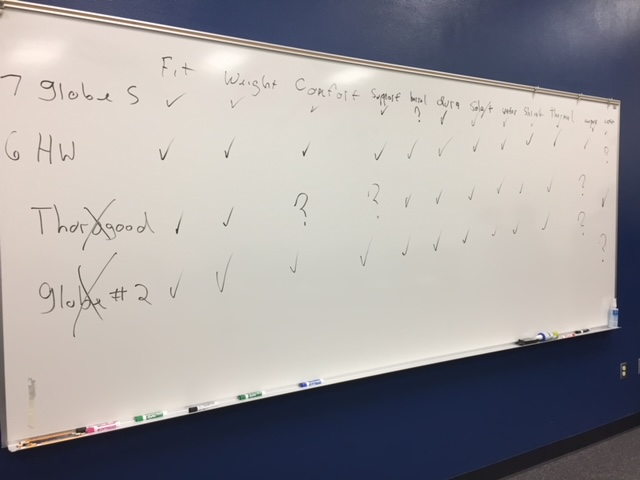 Fit Weight Comfort Support dura Safety water Shock Thermal
7 Globe S ✓ ✓ ✓ ✓ ? ✓ ✓ ✓ ✓ ✓ ✓
6 HW ✓ ✓ ✓ ✓ ✓ ✓ ✓ ✓ ✓ ✓ ?
Thorogood ✓ ✓ ? ? ✓ ✓ ✓ ✓ ✓ ✓ ? ✓
Globe #2 ✓ ✓ ✓ ✓ ✓ ✓ ✓ ✓ ✓ ✓ ? ?